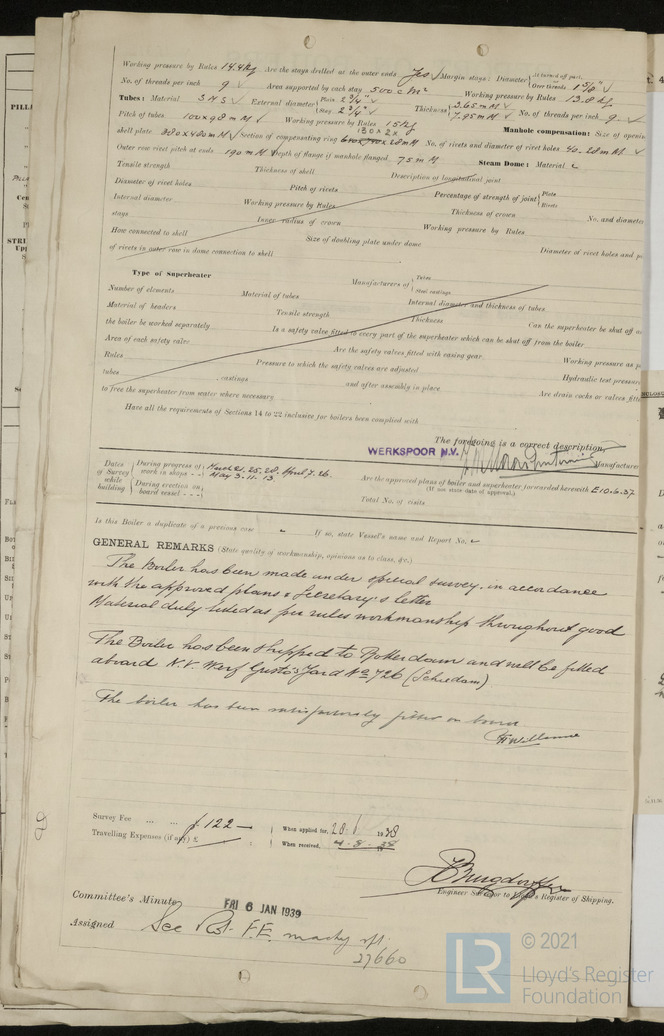 Working pressure by Rules 14.4 Kg Are the stays drilled at the outer ends Yes ✓ Margin stays: Diameter { If turned off part, Over threads 1 5/8" ✓
No. of threads per inch 9 ✓ Area supported by each stay 500 cm² Working pressure by Rules 13.8 kg
Tubes: Material S.M.S ✓ External diameter { Plain 2 3/4" ✓ Stay 2 3/4" ✓ Thickness { 3.65 m/M ✓ 7.95 m/M ✓ No. of threads per inch 9 ✓
Pitch of tubes 100 x 98 m/M ✓ Working pressure by Rules 15 kg Manhole compensation: Size of openin
shell plate 380 x 480 m/M ✓ Section of compensating ring x 28 m/M No. of rivets and diameter of rivet holes 40. 28 m/M. ✓
Outer row rivet pitch at ends 190 m/M ✓ Depth of flange if manhole flanged 75 m/M Steam Dome: Material
Tensile strength Thickness of shell Description of longitudinal joint
Diameter of rivet holes Pitch of rivets Percentage of strength of joint { Plate Rivets
Internal diameter Working pressure by Rules Thickness of crown No. and diameter
stays Inner radius of crown Working pressure by Rules
How connected to shell Size of doubling plate under dome Diameter of rivet holes and p
of rivets in outer row in dome connection to shell
Type of Superheater Manufacturers of { Tubes Steel castings
Number of elements Material of tubes Internal diameter and thickness of tubes
Material of headers Tensile strength Thickness Can the superheater be shut off a
the boiler be worked separately Is a safety valve fitted to every part of the superheater which can be shut off from the boiler
Area of each safety valve Are the safety valves fitted with easing gear Working pressure as p
Rules Pressure to which the safety valves are adjusted Hydraulic test pressure
tubes castings and after assembly in place Are drain cocks or valves fitte
to free the superheater from water where necessary
Have all the requirements of Sections 14 to 22 inclusive for boilers been complied with
The foregoing is a correct description,
WERKSPOOR N.V. Manufacturer
Dates of Survey while building { During progress of work in shops - - March 21. 25. 28. April 7. 26. May 3. 11. 13.
During erection on board vessel - - -
Are the approved plans of boiler and superheater forwarded herewith E 10.6.37
(If not state date of approval.)
Total No. of visits
Is this Boiler a duplicate of a previous case If so, state Vessel's name and Report No.
GENERAL REMARKS (State quality of workmanship, opinions as to class, &c.)
The Boiler has been made under special survey, in accordance
with the approved plans & Secretary's letter
Material duly tested as per rules workmanship throughout good
The Boiler has been shipped to Rotterdam and will be fitted
aboard N.V. Werf Gusto's Yard No 726 (Schiedam)
The boiler has been satisfactorily fitted on board
Survey Fee ... ... £ 122 - When applied for, 28. 19 38
Travelling Expenses (if any) £ When received, 4-8-38
Engineer Surveyor to Lloyd's Register of Shipping.
Committee's Minute FRI 6 JAN 1939
Assigned See Rot. F.E. machy rpt.
27660
LR © 2021
Lloyd's Register
Foundation